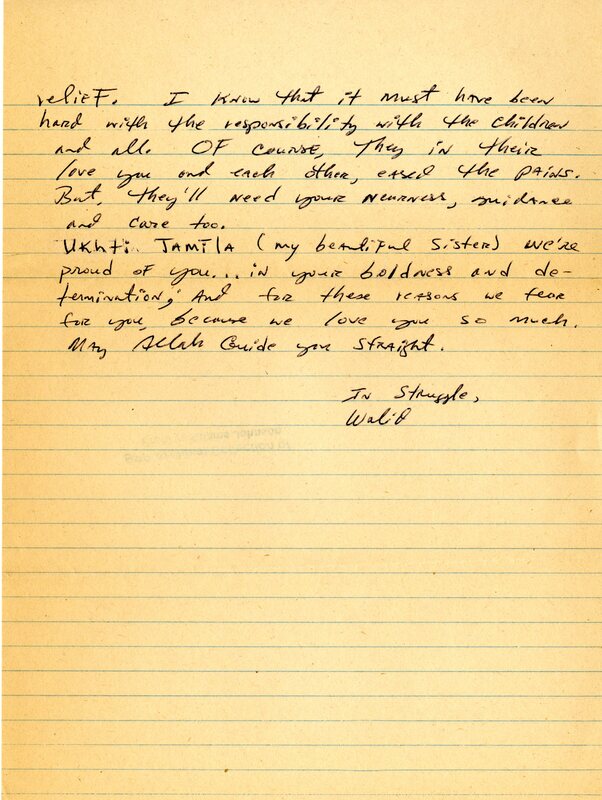 relief. I know that it must have been
hard with the responsibility with the children
and all. Of course, they in their
love you and each other, eased the pains.
But, they'll need your nearness, guidance
and care too.
Ukhti Jamila (my beautiful Sister) we're
proud of you... in your boldness and de-
termination; And for these reasons we fear
for you, because we love you so much.
May Allah Guide you Straight.
In Struggle,
Walid